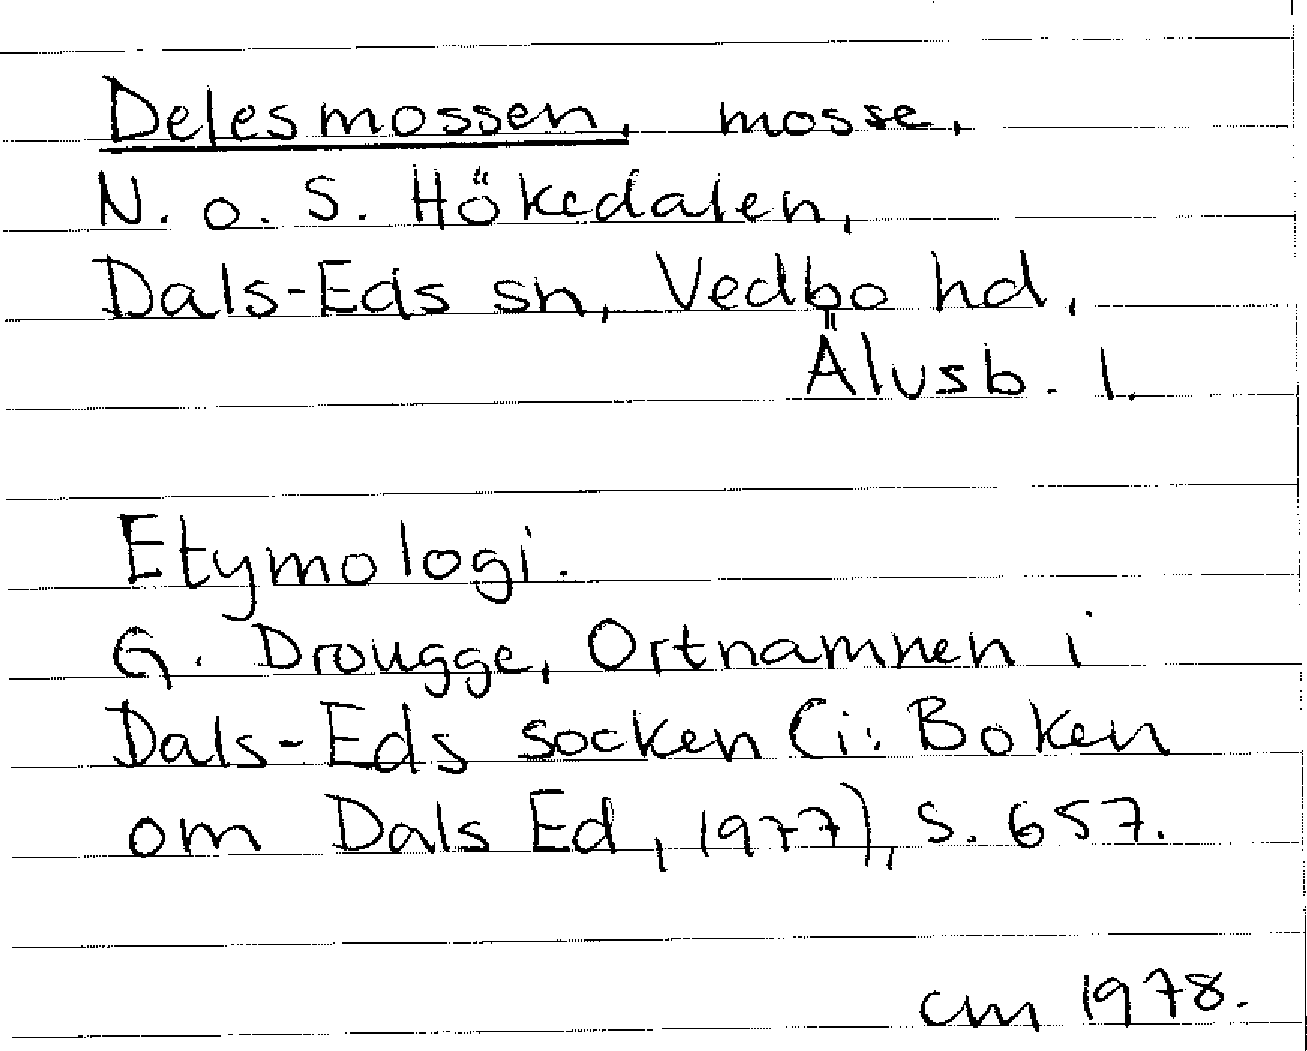 Delesmossen, mosse,
N. o. S. Hökedalen,
Dals-Eds sn, Vedbo hd,
Älvsb. l.
Etymologi.
G. Drougge, Ortnamnen i
Dals-Eds socken (i: Boken
om Dals Ed, 1977), s. 657.
cm 1978.